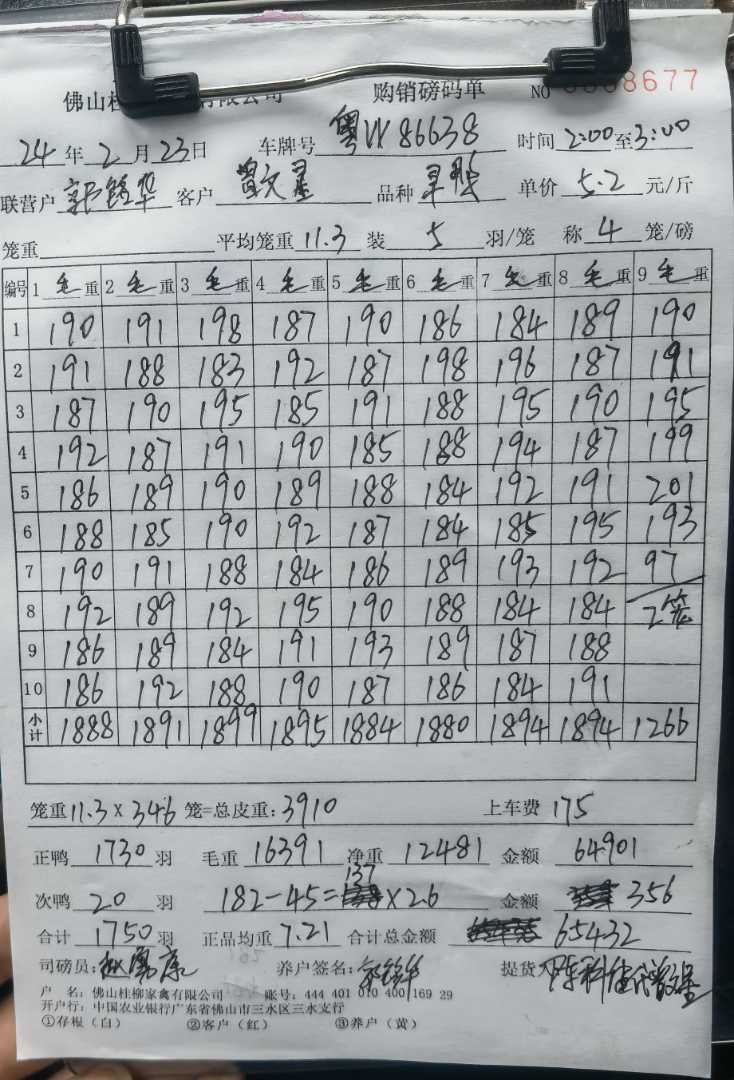 佛山桂 有限公司 购销磅码单 NO 0008677
24年2月23日 车牌号 粤W86638 时间2:00至3:00
联营户 郭锦华 客户 曾文星 品种 旱鸭 单价 5.2 元/斤
笼重 平均笼重 11.3 装 5 羽/笼 称 4 笼/磅
编号 1毛重 2毛重 3毛重 4毛重 5毛重 6毛重 7毛重 8毛重 9毛重
1 190 191 198 187 190 186 184 189 190
2 191 188 183 192 187 198 196 187 191
3 187 190 195 185 191 188 195 190 195
4 192 187 191 190 185 188 194 187 199
5 186 189 190 189 188 184 192 191 201
6 188 185 190 192 187 184 185 195 193
7 190 191 188 184 186 189 193 192 97
8 192 189 192 195 190 188 184 184 2笼
9 186 189 184 191 193 189 187 188
10 186 192 188 190 187 186 184 191
小计 1888 1891 1899 1895 1884 1880 1894 1894 1266
笼重11.3×346笼=总皮重:3910 上车费 175
正鸭 1730 羽 毛重 16391 净重 12481 金额 64901
次鸭 20 羽 182-45=137×2.6 金额 356
合计 1750 羽 正品均重 7.21 合计总金额 65432
司磅员: 养户签名: 提货人
户 名: 佛山桂柳家禽有限公司 账号: 444 401 010 400 169 29
开户行: 中国农业银行广东省佛山市三水区三水支行
①存根(白) ②客户(红) ③养户(黄)